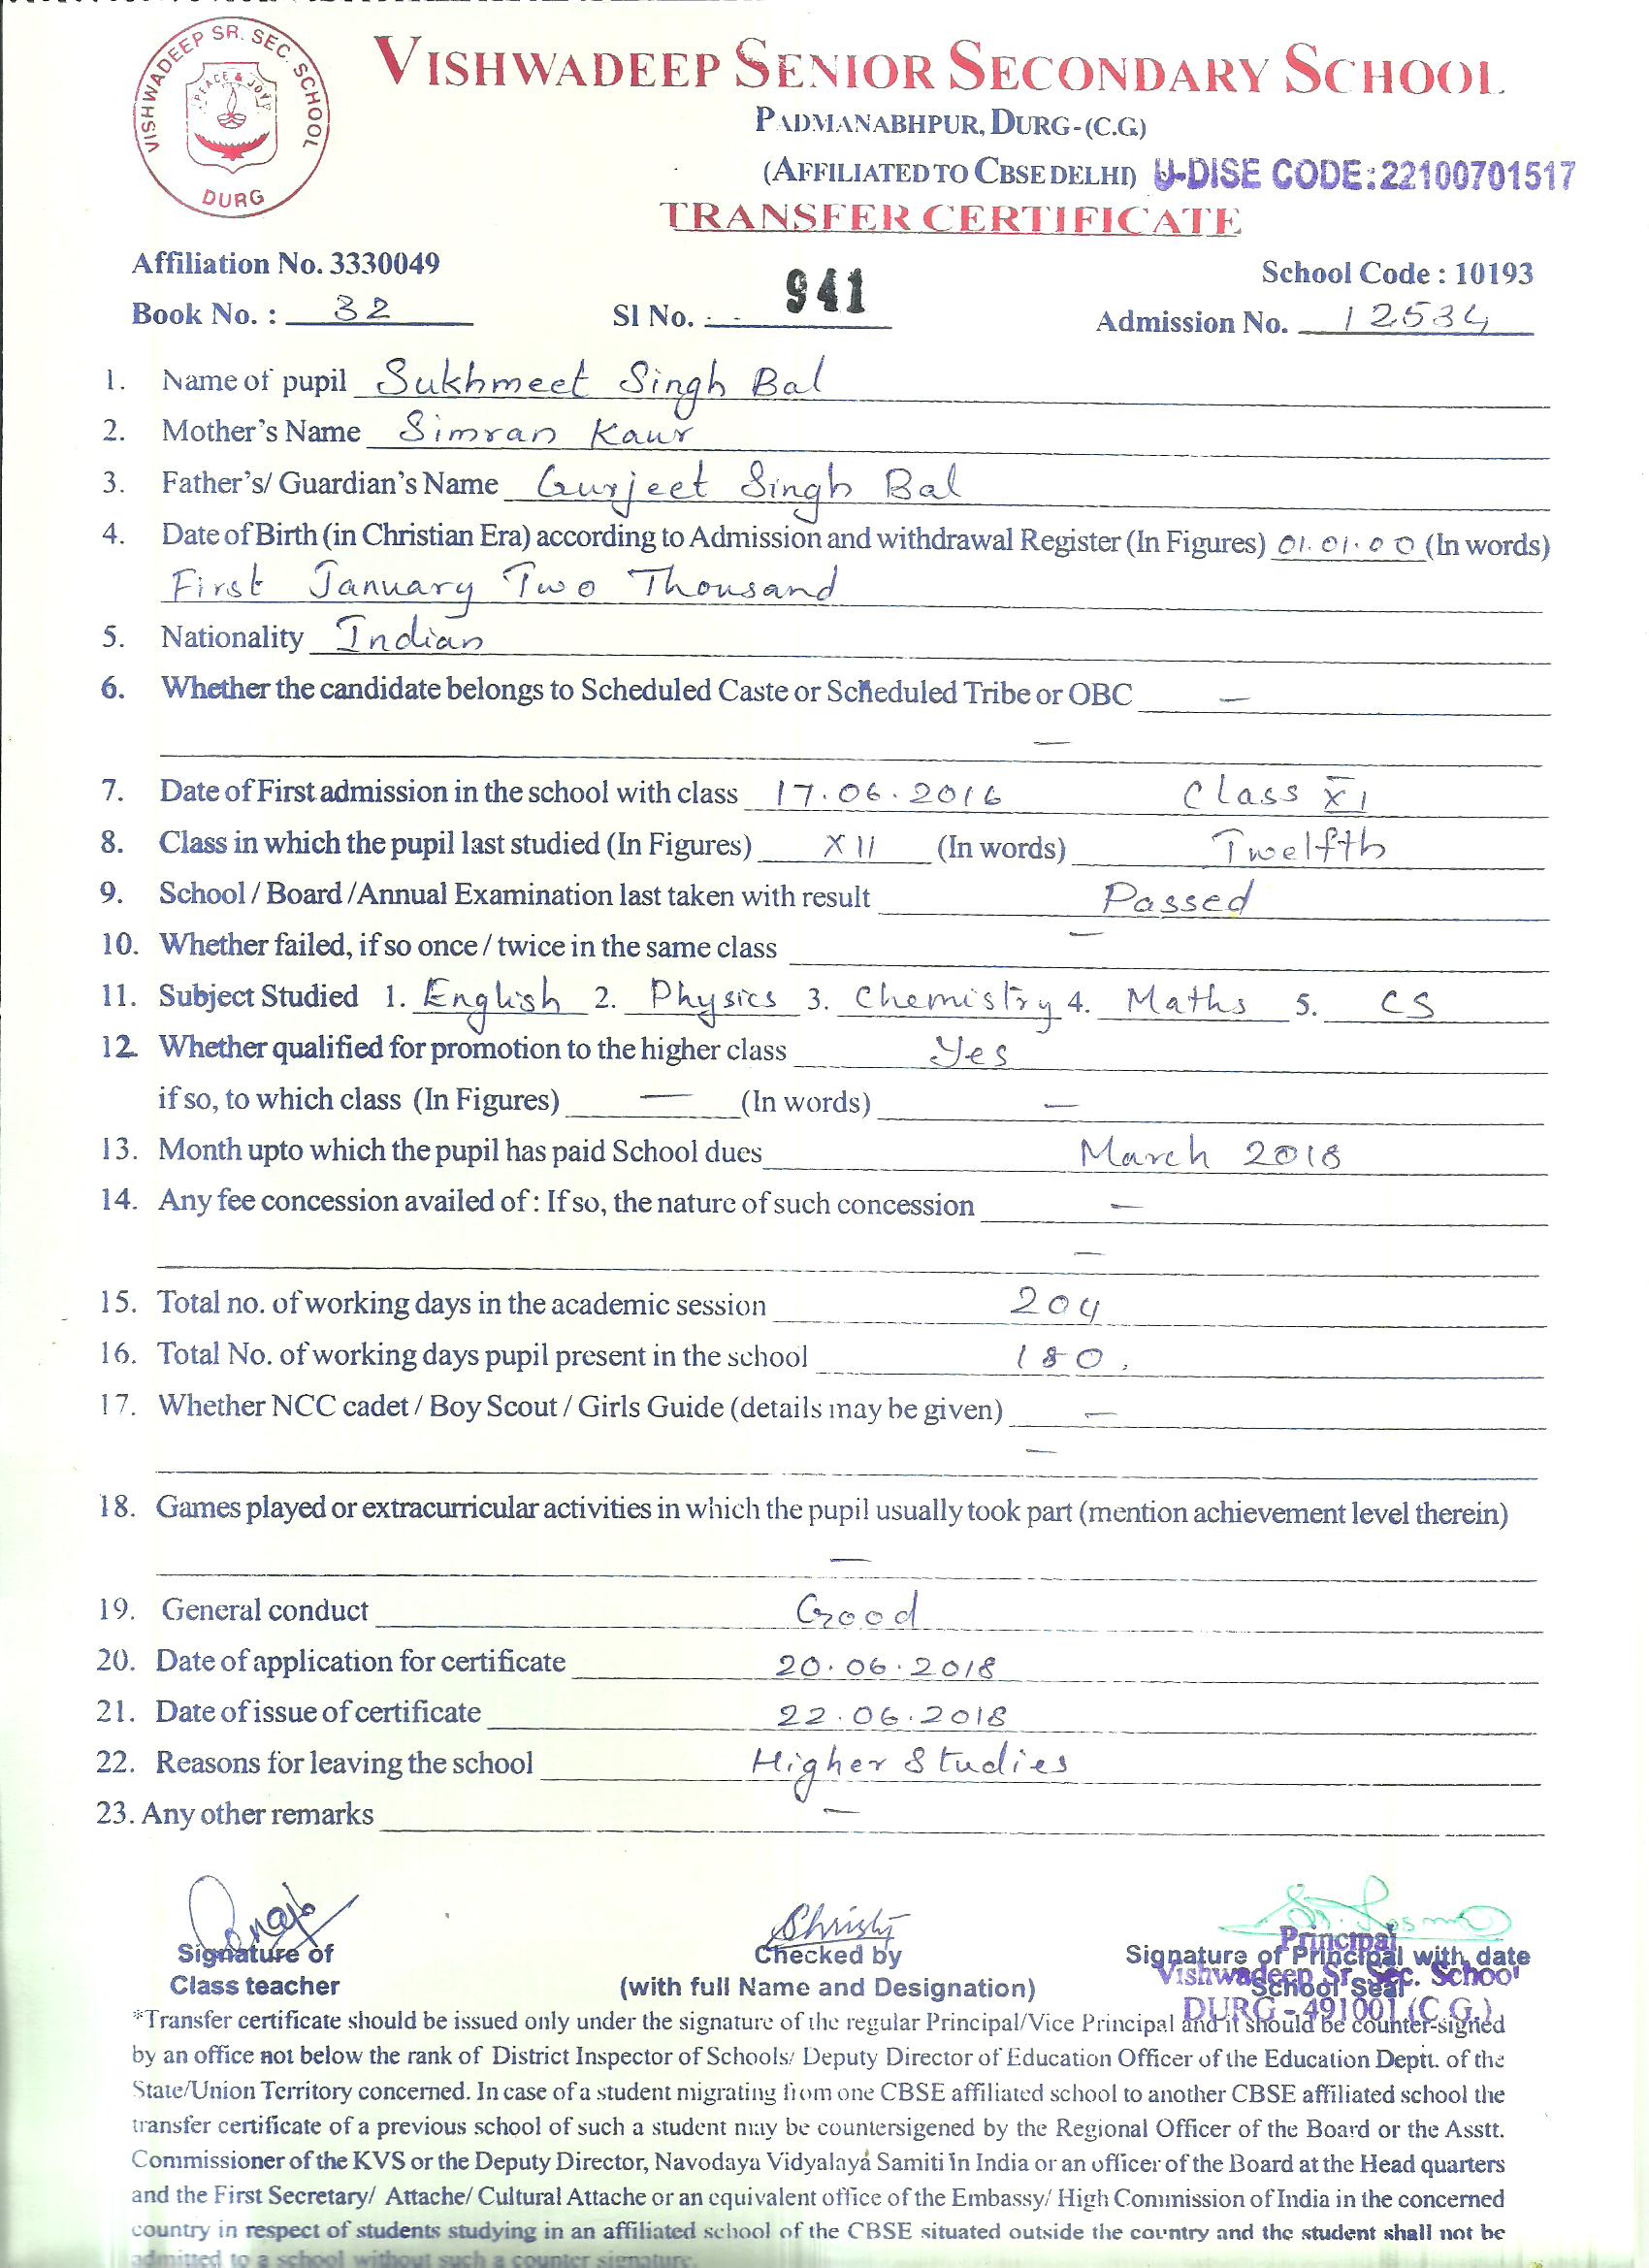 VISHWADEEP SR. SEC. SCHOOL
PEACE & JOY
DURG
VISHWADEEP SENIOR SECONDARY SCHOOL
PADMANABHPUR, DURG-(C.G.)
(AFFILIATED TO CBSE DELHI) U-DISE CODE:22100701517
TRANSFER CERTIFICATE
Affiliation No. 3330049 School Code : 10193
Book No. : 32 Sl No. 941 Admission No. 12534
1. Name of pupil Sukhmeet Singh Bal
2. Mother's Name Simran Kaur
3. Father's/ Guardian's Name Gurjeet Singh Bal
4. Date of Birth (in Christian Era) according to Admission and withdrawal Register (In Figures) 01.01.00 (In words)
First January Two Thousand
5. Nationality Indian
6. Whether the candidate belongs to Scheduled Caste or Scheduled Tribe or OBC —
—
7. Date of First admission in the school with class 17.06.2016 Class XI
8. Class in which the pupil last studied (In Figures) XII (In words) Twelfth
9. School / Board /Annual Examination last taken with result Passed
10. Whether failed, if so once / twice in the same class —
11. Subject Studied 1. English 2. Physics 3. Chemistry 4. Maths 5. CS
12. Whether qualified for promotion to the higher class Yes
if so, to which class (In Figures) — (In words) —
13. Month upto which the pupil has paid School dues March 2018
14. Any fee concession availed of : If so, the nature of such concession —
—
15. Total no. of working days in the academic session 204
16. Total No. of working days pupil present in the school 180.
17. Whether NCC cadet / Boy Scout / Girls Guide (details may be given) —
—
18. Games played or extracurricular activities in which the pupil usually took part (mention achievement level therein)
—
19. General conduct Good
20. Date of application for certificate 20.06.2018
21. Date of issue of certificate 22.06.2018
22. Reasons for leaving the school Higher Studies
23. Any other remarks —
Christy
Signature of Checked by Signature of Principal with date
Class teacher (with full Name and Designation) School Seal
Principal
Vishwadeep Sr. Sec. School
DURG - 491001 (C.G.)
*Transfer certificate should be issued only under the signature of the regular Principal/Vice Principal and it should be counter-signed
by an office not below the rank of District Inspector of Schools/ Deputy Director of Education Officer of the Education Deptt. of the
State/Union Territory concerned. In case of a student migrating from one CBSE affiliated school to another CBSE affiliated school the
transfer certificate of a previous school of such a student may be countersigened by the Regional Officer of the Board or the Asstt.
Commissioner of the KVS or the Deputy Director, Navodaya Vidyalaya Samiti in India or an officer of the Board at the Head quarters
and the First Secretary/ Attache/ Cultural Attache or an equivalent office of the Embassy/ High Commission of India in the concerned
country in respect of students studying in an affiliated school of the CBSE situated outside the country and the student shall not be
admitted to a school without such a counter signature.